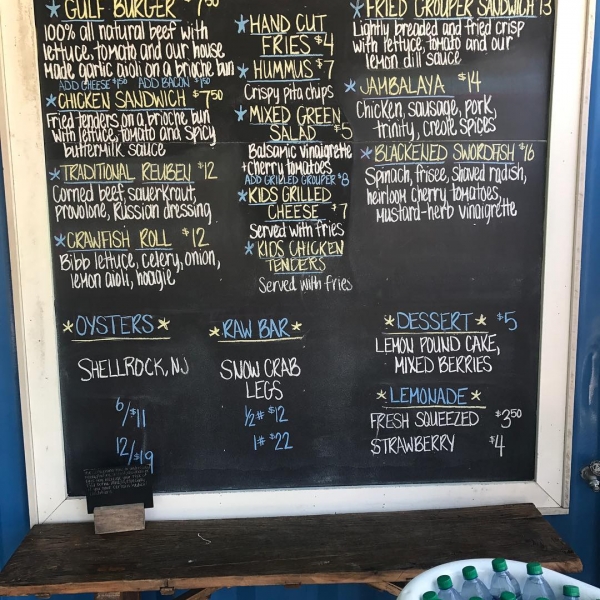 GULF BURGER $7.50
100% all natural beef with
lettuce, tomato and our house
made garlic aioli on a brioche bun
ADD CHEESE $1.50 ADD BACON $1.50
CHICKEN SANDWICH $7.50
Fried tenders on a brioche bun
with lettuce, tomato and spicy
buttermilk sauce
TRADITIONAL REUBEN $12
Corned beef, sauerkraut,
provolone, Russian dressing
CRAWFISH ROLL $12
Bibb lettuce, celery, onion,
lemon aioli, hoagie
HAND CUT
FRIES $4
HUMMUS $7
Crispy pita chips
MIXED GREEN
SALAD $5
Balsamic vinaigrette
+cherry tomatoes
ADD GRILLED GROUPER $8
KIDS GRILLED
CHEESE $7
Served with fries
KIDS CHICKEN
TENDERS
Served with fries
FRIED GROUPER SANDWICH 13
Lightly breaded and fried crisp
with lettuce, tomato and our
lemon dill sauce
JAMBALAYA $14
Chicken, sausage, pork,
trinity, creole spices
BLACKENED SWORDFISH $16
Spinach, frisee, shaved radish,
heirloom cherry tomatoes,
mustard-herb vinaigrette
OYSTERS
SHELLROCK, NJ
6/$11
12/$19
RAW BAR
SNOW CRAB
LEGS
½# $12
1# $22
DESSERT $5
LEMON POUND CAKE,
MIXED BERRIES
LEMONADE
FRESH SQUEEZED $3.50
STRAWBERRY $4